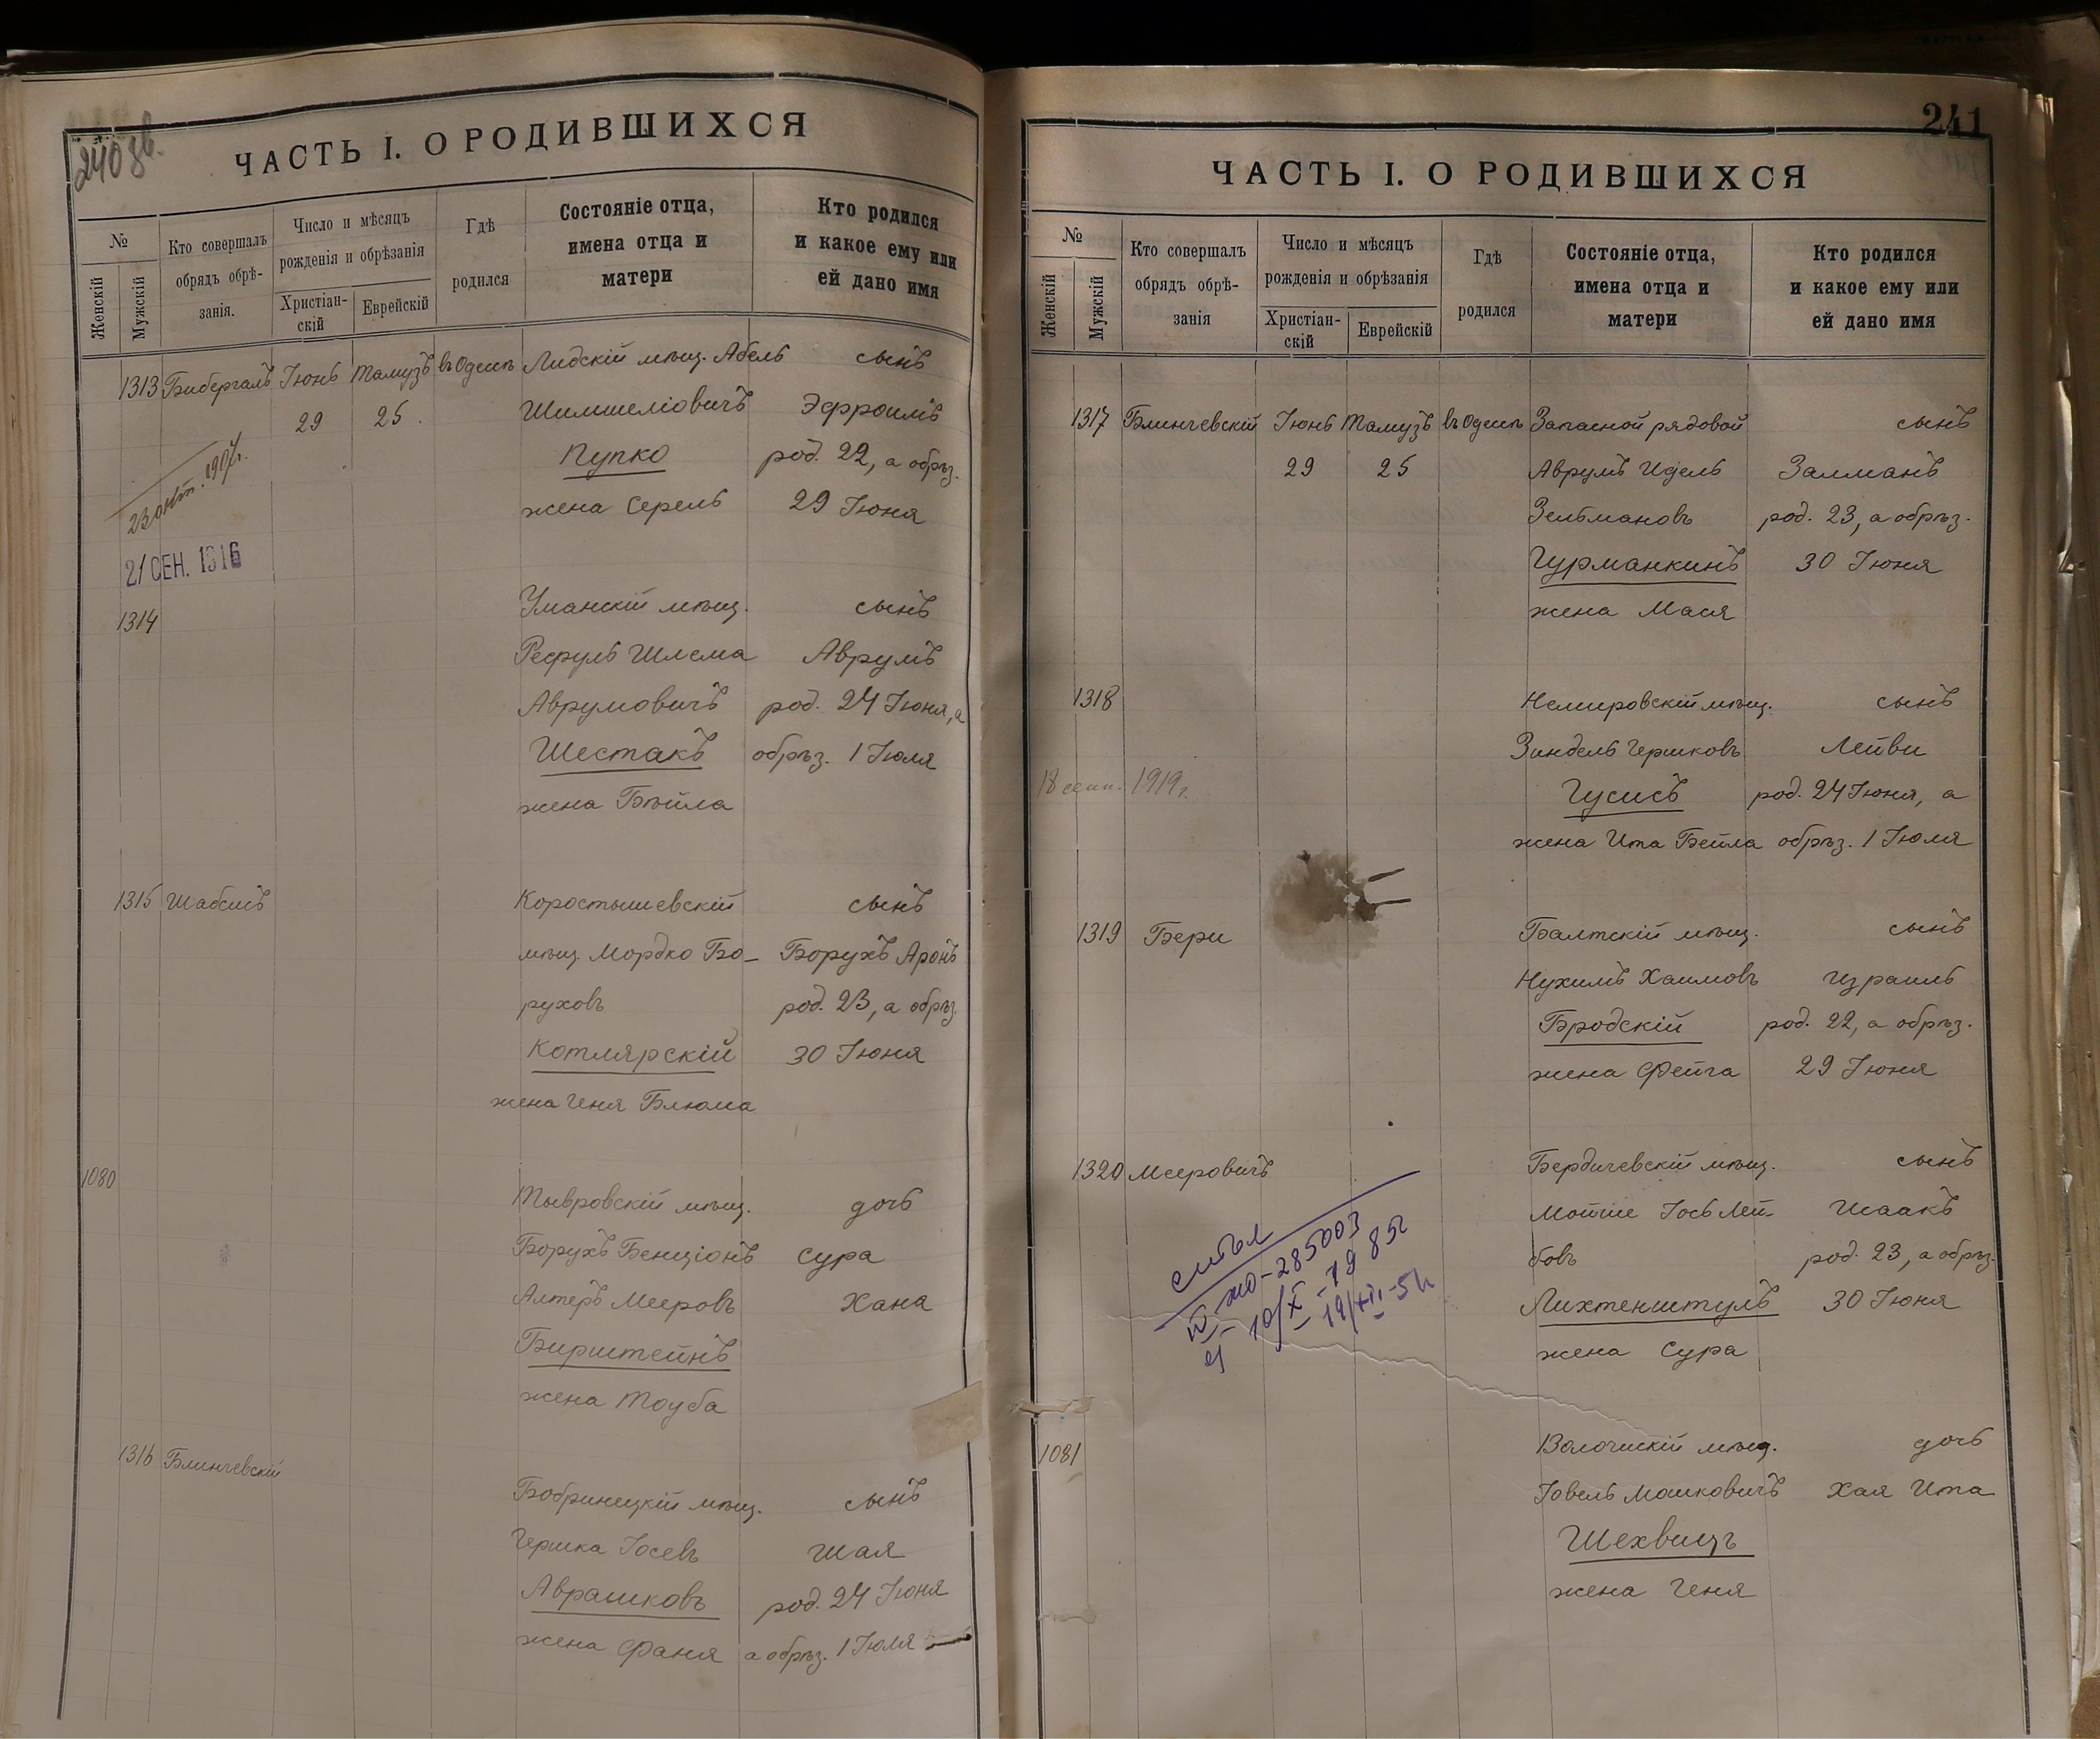 240 зв.
ЧАСТЬ I. О РОДИВШИХСЯ
№
Женскій
Мужскій
Кто совершалъ обрядъ обрѣ-занія.
Число и мѣсяцъ рожденія и обрѣзанія
Христіан-скій
Еврейскій
Гдѣ родился
Состояніе отца, имена отца и матери
Кто родился и какое ему или ей дано имя
1313 Бибергалъ Іюнь Тамузъ въ Одессѣ Лидскій мѣщ. Абель сынъ
29 25. Шимшеліовичъ Эфроимъ
Пупко род. 22, а обрѣз.
23 окт. 1907г.
жена Серель 29 Іюня
21 СЕН. 1916
1314 Уманскій мѣщ. сынъ
Рефуль Шлема Аврумъ
Аврумовичъ род. 24 Іюня, а
Шестакъ обрѣз. 1 Іюля
жена Бѣйла
1315 Шабсисъ Коростышевскій сынъ
мѣщ. Мордко Бо- Борухъ Аронъ
руховъ род. 23, а обрѣз.
Котлярскій 30 Іюня
жена Геня Блюма
1080 Тывровскій мѣщ. дочь
Борухъ Бенціонъ Сура
Алтеръ Мееровъ Хана
Бирштейнъ
жена Тоуба
1316 Блинчевскій Бобринецкій мѣщ. сынъ
Гершка Іосевъ Шая
Аврашковъ род. 24 Іюня
жена Фаня а обрѣз. 1 Іюля
241
ЧАСТЬ I. О РОДИВШИХСЯ
№
Женскій
Мужскій
Кто совершалъ обрядъ обрѣ-занія
Число и мѣсяцъ рожденія и обрѣзанія
Христіан-скій
Еврейскій
Гдѣ родился
Состояніе отца, имена отца и матери
Кто родился и какое ему или ей дано имя
1317 Блинчевскій Іюнь Тамузъ въ Одессѣ Запасной рядовой сынъ
29 25 Аврумъ Идель Залманъ
Зельмановъ род. 23, а обрѣз.
Гурманкинъ 30 Іюня
жена Мася
1318 Немировскій мѣщ. сынъ
Зиндель Гершковъ Лейви
18 сент. 1919 г. Гусисъ род. 24 Іюня, а
жена Ита Бейла обрѣз. 1 Іюля
1319 Бери Балтскій мѣщ. сынъ
Нухимъ Хаимовъ Израиль
Бродскій род. 22, а обрѣз.
жена Фейга 29 Іюня
1320 Мееровичъ Бердичевскій мѣщ. сынъ
Мотше Іось Лей- Исаакъ
бовъ род. 23, а обрѣз.
Лихтенштулъ 30 Іюня
жена Сура
285003
1081 Волочискій мѣщ. дочь
Іовель Мошковичъ Хая Ита
Шехвицъ
жена Геня